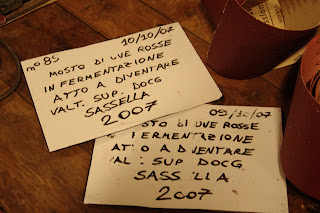 n° 85 10/10/07
MOSTO DI UVE ROSSE
IN FERMENTAZIONE
ATTO A DIVENTARE
VALT. SUP. DOCG
SASSELLA
2007
09/10/07
MOSTO DI UVE ROSSE
FERMENTAZIONE
ATTO A DIVENTARE
VAL SUP DOCG
SASS LLA
2007